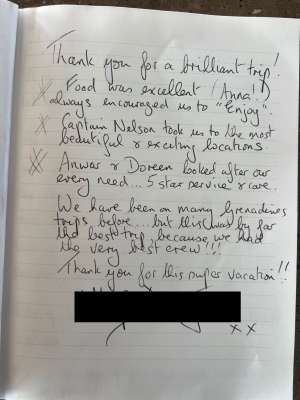 Thank you for a brilliant trip!
Food was excellent (Anna!!)
always encouraged us to "Enjoy".
Captain Nelson took us to the most
beautiful & exciting locations.
Anwar & Doreen looked after our
every need... 5 star service & care.
We have been on many Grenadines
trips before... but this was by far
the best trip because we had
the very best crew!!!
Thank you for this super vacation!!
x x